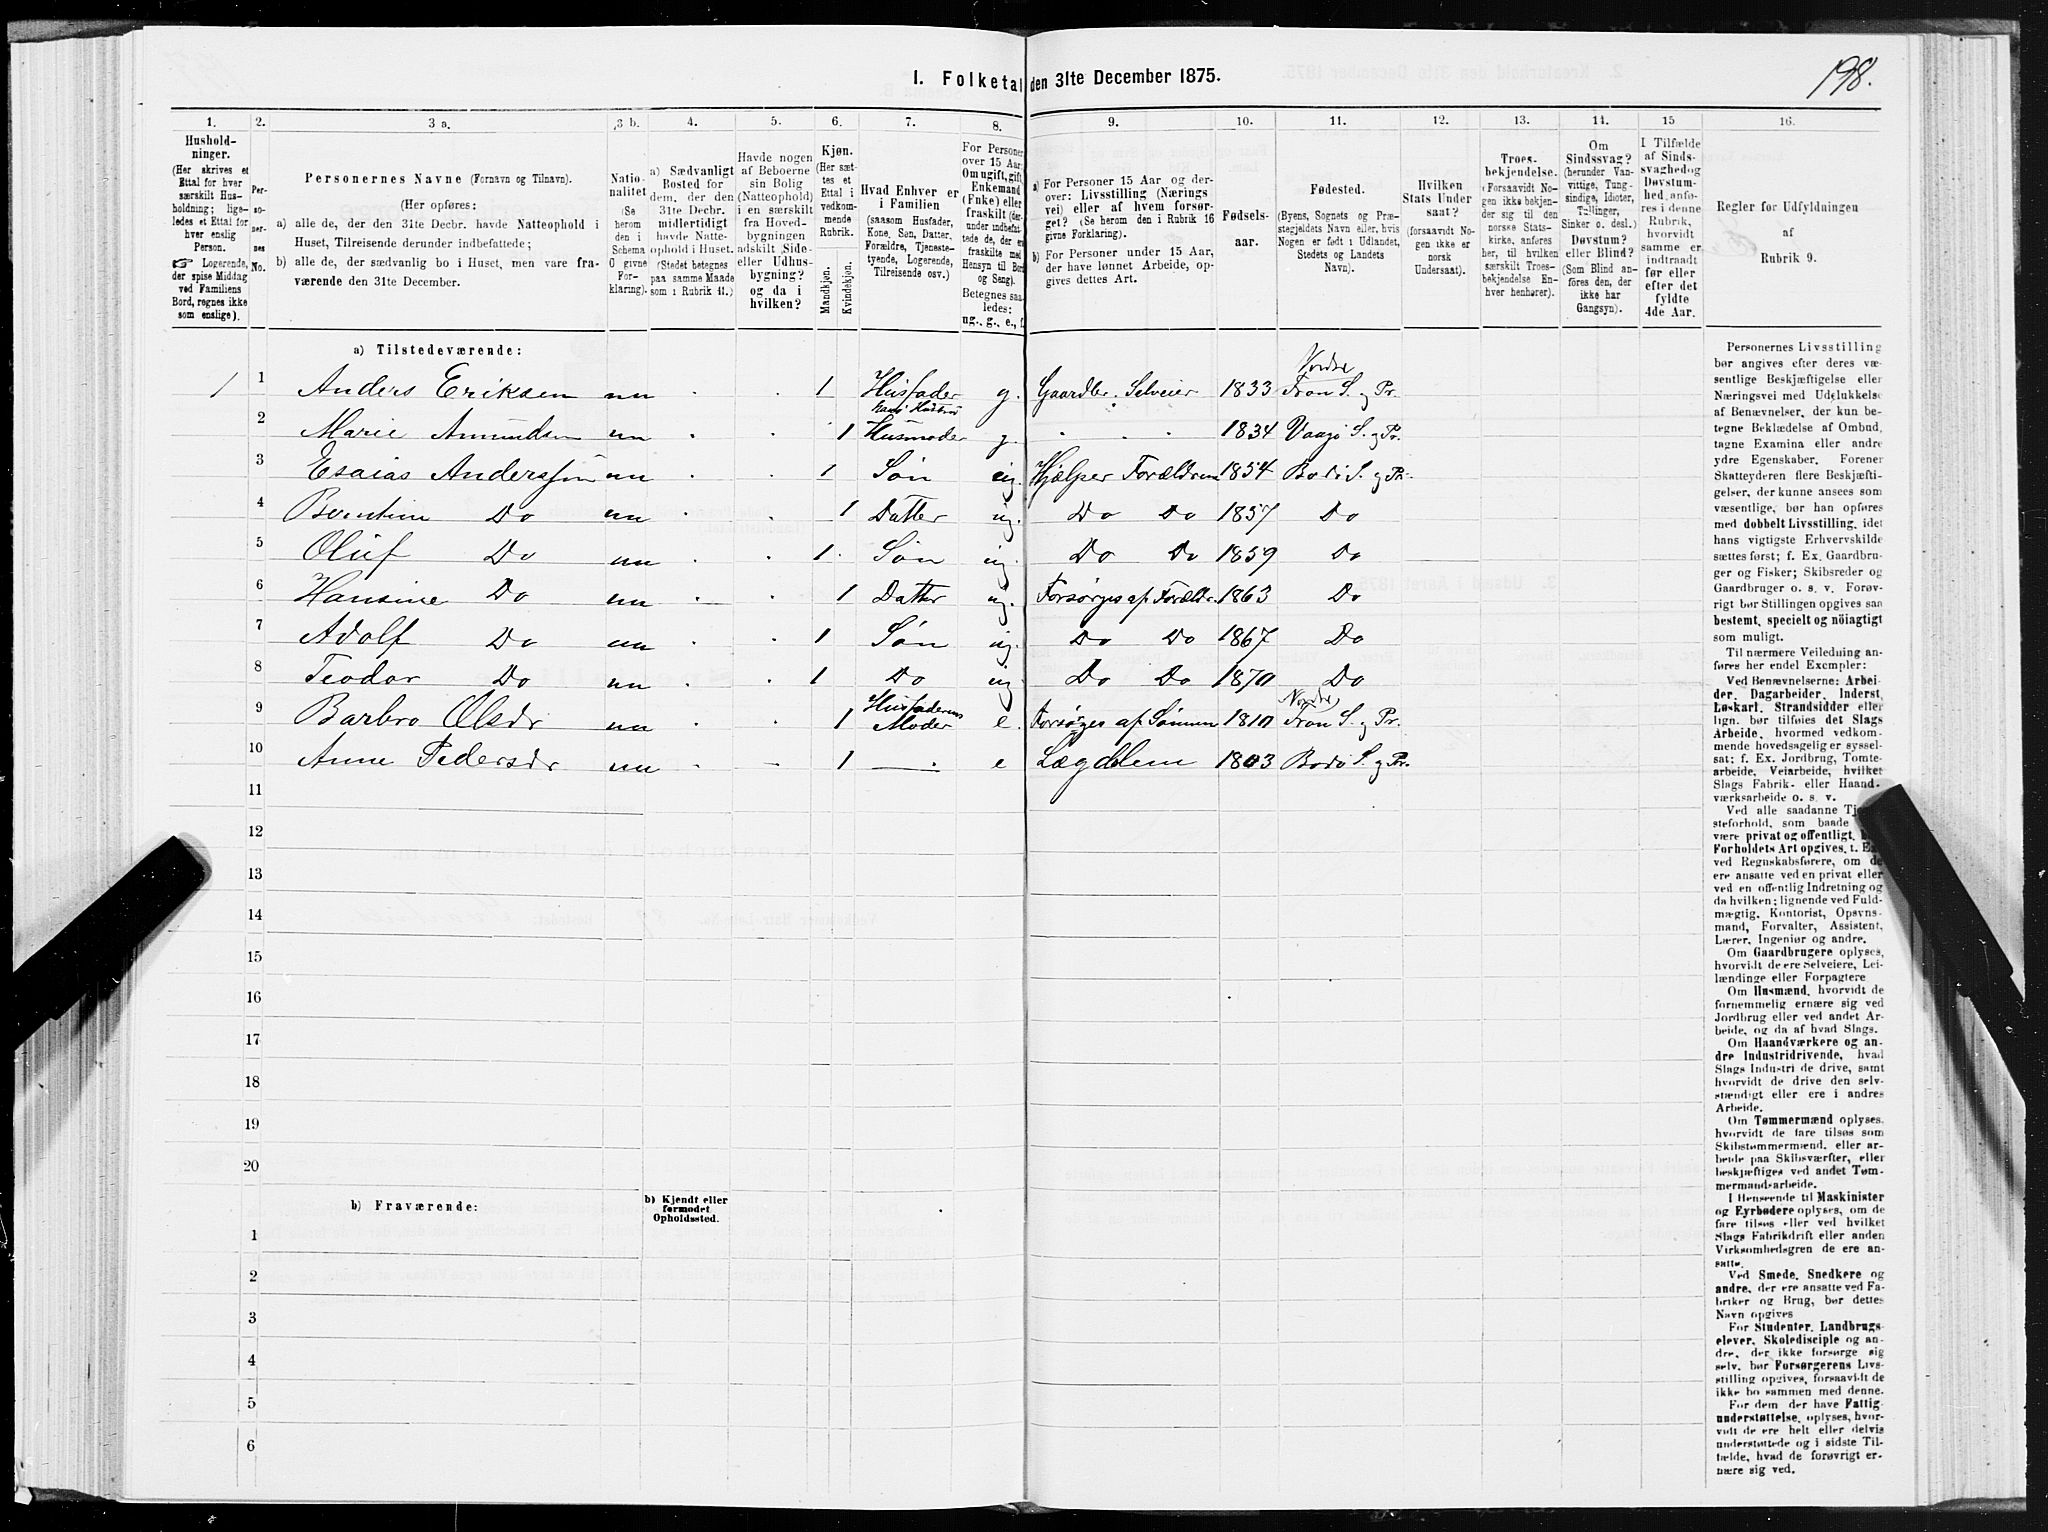 198.
I. Folketal den 31te December 1875.
1. 2. 3 a. 3 b. 4. 5. 6. 7. 8. 9. 10. 11. 12. 13. 14. 15 16.
Husholdninger. (Her skrives et Ettal for hver særskilt Husholdning; ligeledes et Ettal for hver enslig Person. ☞ Logerende, der spise Middag ved Familiens Bord, regnes ikke som enslige).
Personernes No.
Personernes Navne (Fornavn og Tilnavn).
(Her opføres:
a) alle de, der den 31te Decbr. havde Natteophold i Huset, Tilreisende derunder indbefattede;
b) alle de, der sædvanlig bo i Huset, men vare fraværende den 31te December.
Nationalitet (Se herom den i Schema O givne Forklaring).
a) Sædvanligt Bosted for dem, der den 31te Decbr. midlertidigt havde Natteophold i Huset. (Stedet betegnes paa samme Maade som i Rubrik 11.)
Havde nogen af Beboerne sin Bolig (Natteophold) i en særskilt fra Hovedbygningen adskilt Side- eller Udhusbygning? og da i hvilken?
Kjøn. (Her sættes et Ettal i vedkommende Rubrik.
Mandkjøn. Kvindekjøn.
Hvad Enhver er i Familien (saasom Husfader, Kone, Søn, Datter, Forældre, Tjenestetyende, Logerende, Tilreisende osv.)
For Personer over 15 Aar: Om ugift, gift, Enkemand (Enke) eller fraskilt (derunder indbefattede de, der ere fraskilte med Hensyn til Bord og Seng). Betegnes saaledes: ug., g., e., f.
a) For Personer 15 Aar og derover: Livsstilling (Næringsvei) eller af hvem forsørget? (Se herom den i Rubrik 16 givne Forklaring).
b) For Personer under 15 Aar, der have lønnet Arbeide, opgives dettes Art.
Fødselsaar.
Fødested. (Byens, Sognets og Præstegjeldets Navn eller, hvis Nogen er født i Udlandet, Stedets og Landets Navn).
Hvilken Stats Undersaat? (forsaavidt Nogen ikke er norsk Undersaat).
Troesbekjendelse. (Forsaavidt Nogen ikke bekjender sig til den norske Statskirke, anføres her, til hvilken særskilt Troesbekjendelse Enhver henhører).
Om Sindssvag? (herunder Vanvittige, Tungsindige, Idioter, Tullinger, Sinker o. desl.) Døvstum? eller Blind? (Som Blind anføres den, der ikke har Gangsyn).
I Tilfælde af Sindssvaghed og Døvstumhed, anføres i denne Rubrik, hvorvidt samme er indtraadt før eller efter det fyldte 4de Aar.
Regler for Udfyldningen af Rubrik 9.
a) Tilstedeværende:
Nordre
1 1 Anders Eriksen nn 1 Husfader g. Gaardbr. Selveier 1833 Fron S. og Pr.
hans Hustru
2 Marie Amundsen nn 1 Husmoder g. 1834 Vaagø S. og Pr.
3 Esaias Anderssen nn 1 Søn ug. Hjælper Forældrene 1854 Bodø S. og Pr.
4 Berntine Do nn 1 Datter ug. Do Do 1857 Do
5 Oluf Do nn 1 Søn ug. Do Do 1859 Do
6 Hansine Do nn 1 Datter ug. Forsørges af Forældr. 1863 Do
7 Adolf Do nn 1 Søn ug. Do Do 1867 Do
8 Teodor Do nn 1 Do ug Do Do 1870 Do
Husfaderens Nordre
9 Barbro Olsdr nn 1 Moder e. Forsørges af Sønnen 1810 Fron S. og Pr.
10 Anne Pedersdr nn 1 e Lægdslem 1803 Bodø S. og Pr.
11
12
13
14
15
16
17
18
19
20
b) Fraværende: b) Kjendt eller formodet Opholdssted.
1
2
3
4
5
6
Personernes Livsstilling
bør angives efter deres væ-
sentlige Beskjæftigelse eller
Næringsvei med Udelukkelse
af Benævnelser, der kun be-
tegne Beklædelse af Ombud,
tagne Examina eller andre
ydre Egenskaber. Forener
Skatteyderen flere Beskjæfti-
gelser, der kunne ansees som
væsentlige, bør han opføres
med dobbelt Livsstilling, idet
hans vigtigste Erhvervskilde
sættes først; f. Ex. Gaardbru-
ger og Fisker; Skibsreder og
Gaardbruger o. s. v. Forøv-
rigt bør Stillingen opgives saa
bestemt, specielt og nöiagtigt
som muligt.
Til nærmere Veiledning an-
føres her endel Exempler:
Ved Benævnelserne: Arbei-
der, Dagarbeider, Inderst,
Løskarl, Strandsidder eller
lign. bør tilføies det Slags
Arbeide, hvormed vedkom-
mende hovedsagelig er syssel-
sat; f. Ex. Jordbrug, Tomte-
arbeide, Veiarbeide, hvilket
Slags Fabrik- eller Haand-
værksarbeide o. s. v.
Ved alle saadanne
steforhold, som baade
være privat og offentligt,
Forholdets Art opgives,
ved Regnskabsførere, om de
ere ansatte ved en privat eller
ved en offentlig Indretning og
da hvilken; lignende ved Fuld-
mægtig, Kontorist, Opsyns-
mand, Forvalter, Assistent,
Lærer, Ingeniør og andre.
Om Gaardbrugere oplyses,
hvorvidt de ere Selveiere, Lei-
lændinge eller Forpagtere
Om Husmænd, hvorvidt de
fornemmelig ernære sig ved
Jordbrug eller ved andet Ar-
beide, og da af hvad Slags.
Om Haandværkere og an-
dre Industridrivende, hvad
Slags Industri de drive, samt
hvorvidt de drive den selv-
stændigt eller ere i andres
Arbeide.
Om Tømmermænd oplyses,
hvorvidt de fare tilsøs som
Skibstømmermænd, eller ar-
beide paa Skibsværfter, eller
beskjæftiges ved andet Tøm-
mermandsarbeide.
I Henseende til Maskinister
og Fyrbødere oplyses, om de
fare tilsøs eller ved hvilket
Slags Fabrikdrift eller anden
Virksomhedsgren de ere an-
satte.
Ved Smede, Snedkere og
andre, der ere ansatte ved Fa-
briker og Brug, bør dettes
Navn opgives
For Studenter, Landbrugs-
elever, Skoledisciple og an-
dre, der ikke forsørge sig
selv, bør Forsørgerens Livs-
stilling opgives, forsaavidt de
ikke bo sammen med denne.
For dem, der have Fattig-
understøttelse, oplyses, hvor-
vidt de ere helt eller delvis
understøttede og i sidste Til-
fælde, hvad de forøvrigt er-
nære sig ved.